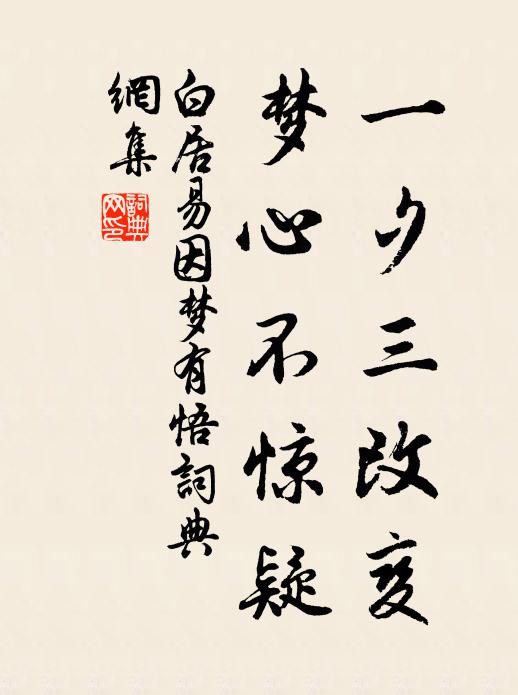 一夕三改变
梦心不惊疑
白居易因梦有悟詞典
網集
詞典
网印